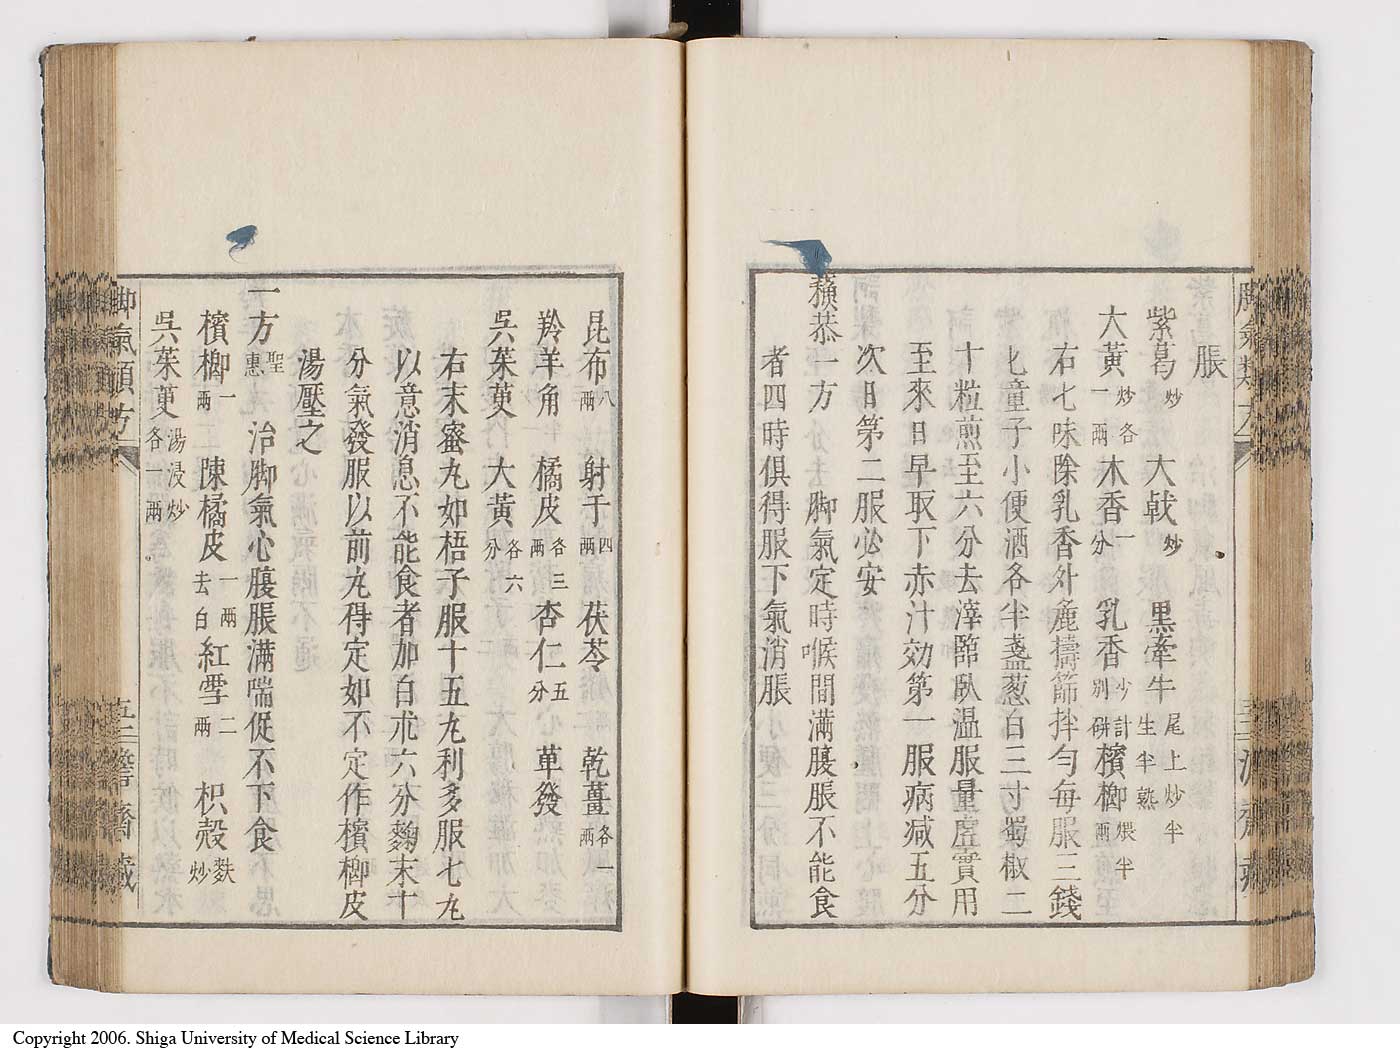 脹
紫葛炒 大戟炒 黒牽牛尾上炒半生半熟
大黃炒各一兩 木香一分 乳香少計別研 檳榔煨半兩
右七味除乳香外麁擣篩拌勻每服三錢
匕童子小便酒各半盞葱白三寸蜀椒二
十粒煎至六分去滓臨臥温服量虚實用
至來日早取下赤汁効第一服病減五分
次日第二服必安
蘇恭一方 脚氣定時喉間滿腹脹不能食
者四時俱得服下氣消脹
昆布八兩 射干四兩 茯苓 乾薑各一兩
羚羊角 橘皮各三兩 杏仁五分 蓽發
吳茱萸 大黃各六分
右末蜜丸如梧子服十五丸利多服七丸
以意消息不能食者加白朮六分麴末十
分氣發服以前丸得定如不定作檳榔皮
湯壓之
一方聖惠 治脚氣心腹脹滿喘促不下食
檳榔一兩 陳橘皮一兩去白 紅雪二兩 枳殼麩炒
吳茱萸湯浸炒各一兩
脚氣類方
Copyright 2006. Shiga University of Medical Science Library